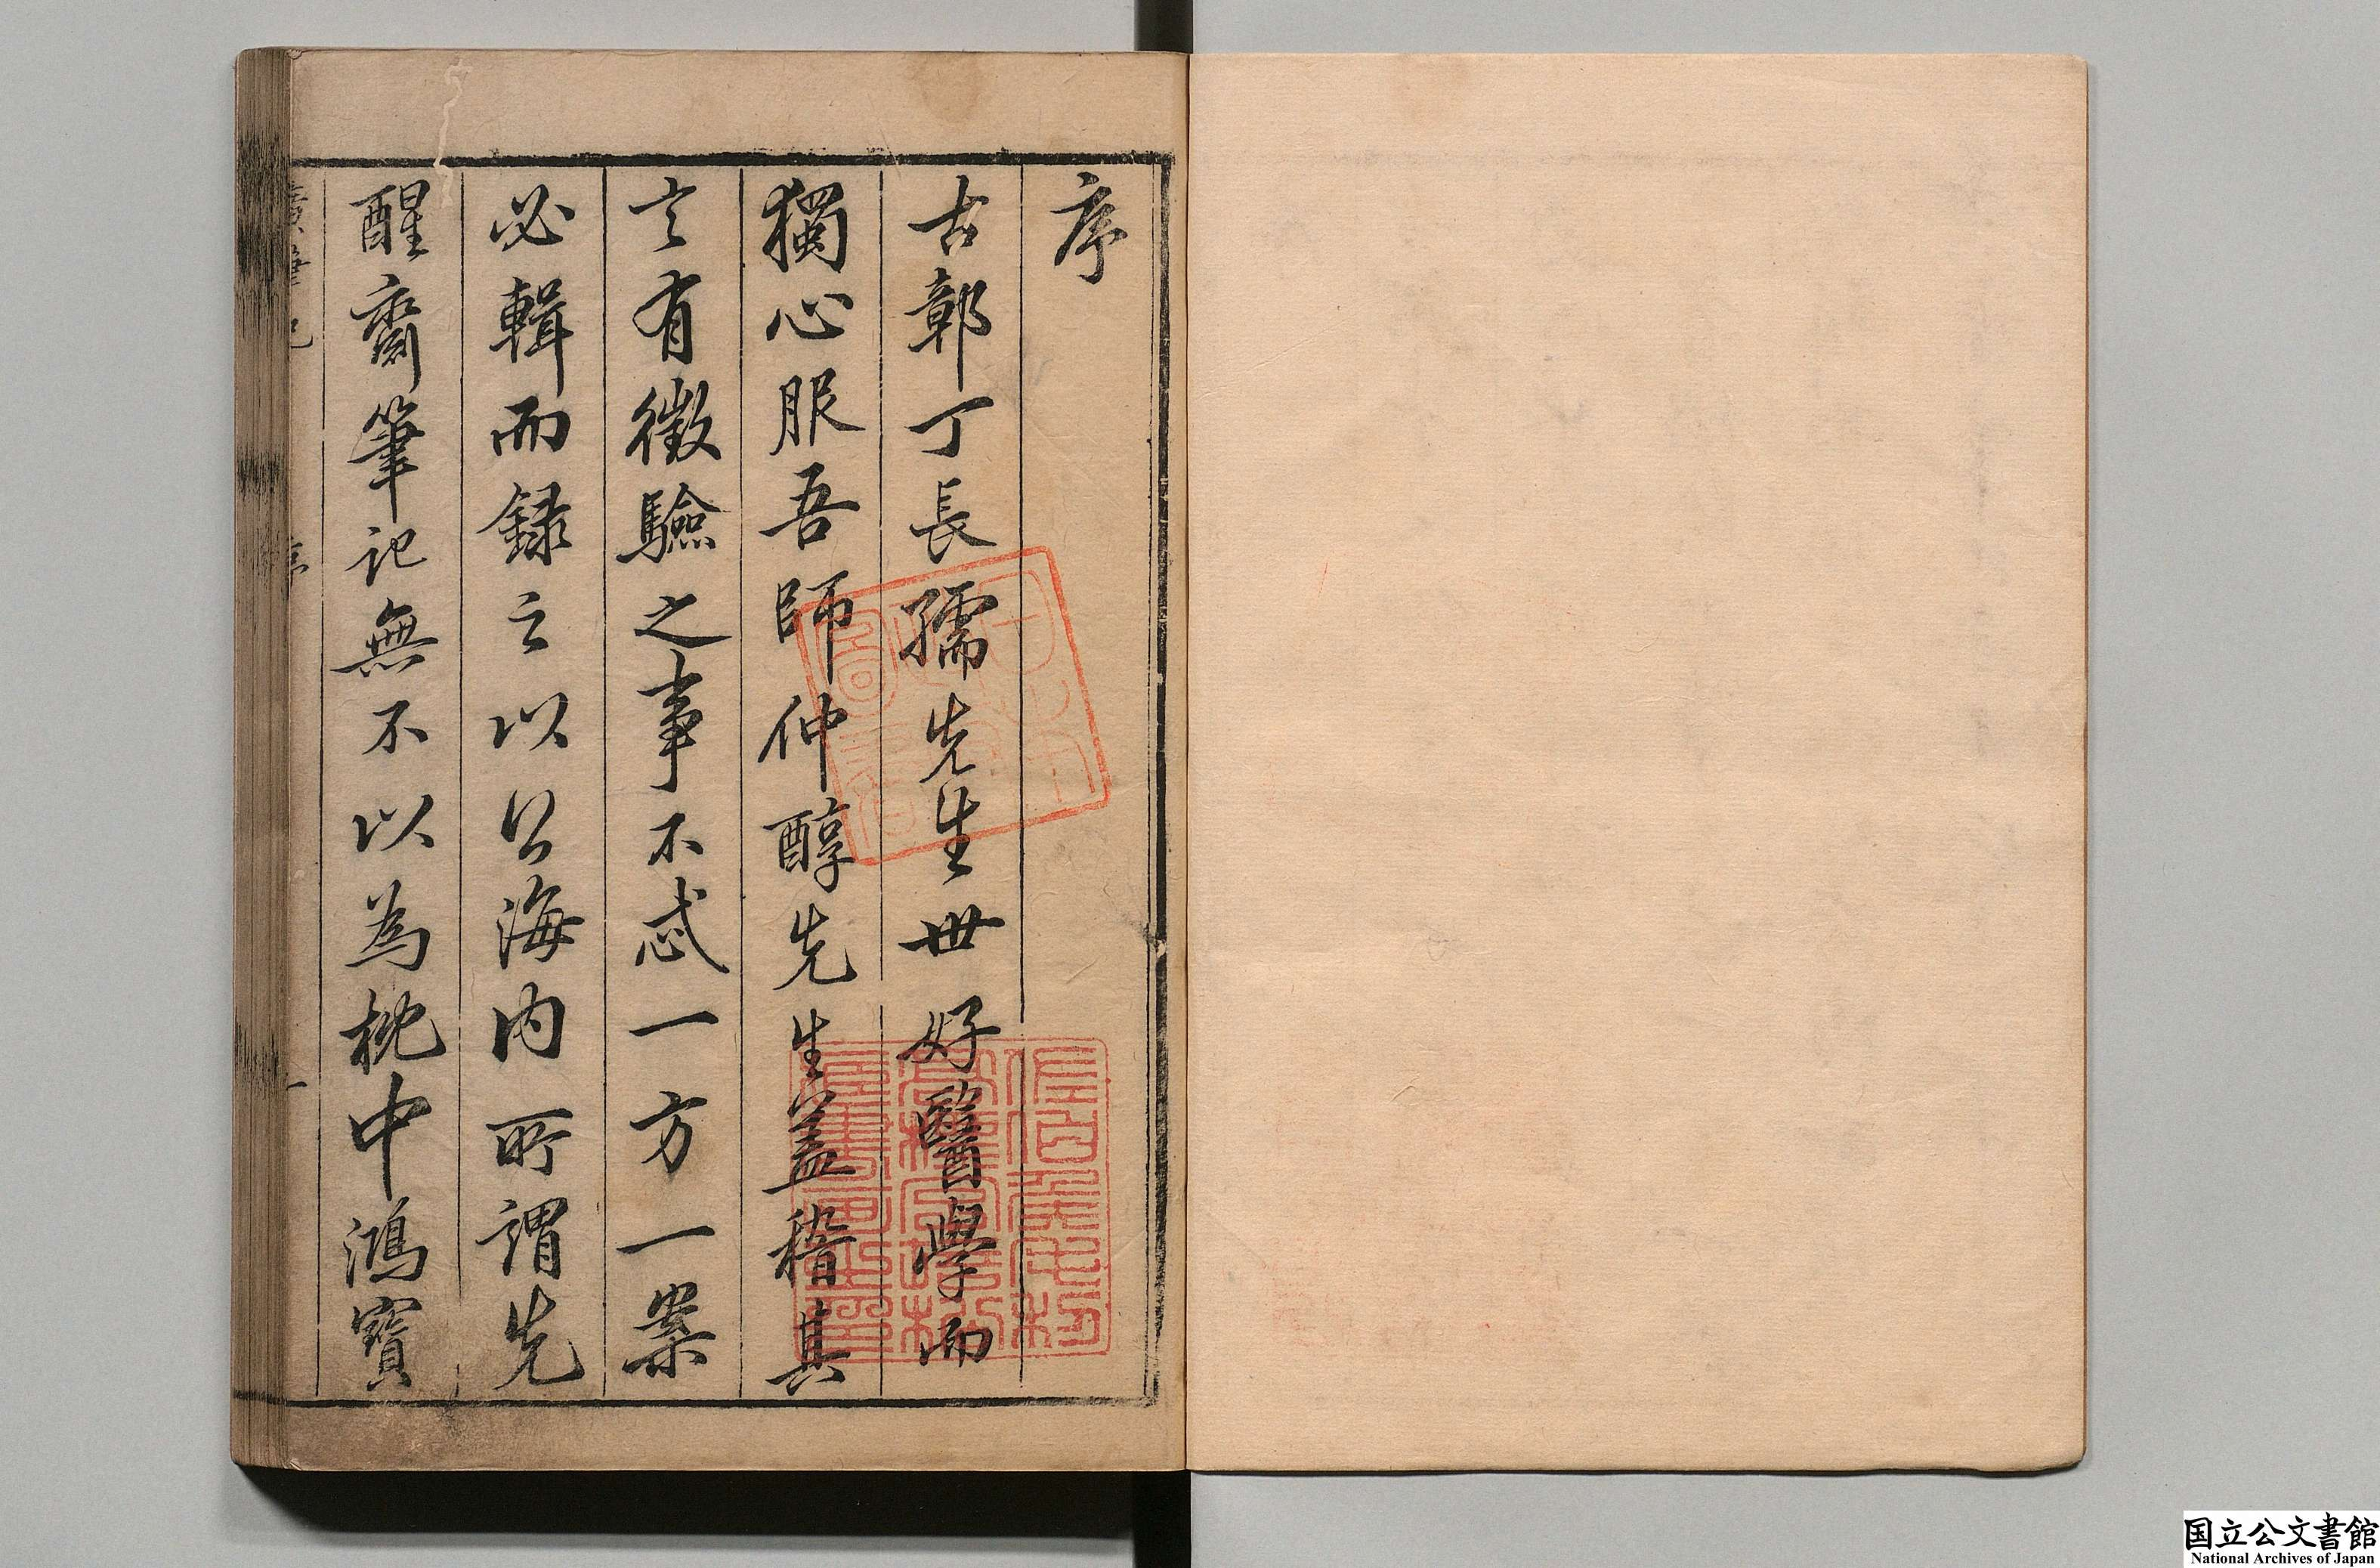 序
古鄣丁長孺先生世好醫學而
獨心服吾師仲醇先生蓋稽其
言有徵驗之事不忒一方一案
必輯而録之以公海内所謂先
醒齋筆記無不以為枕中鴻寶
廣筆記
序
一
国立公文書館
National Archives of Japan